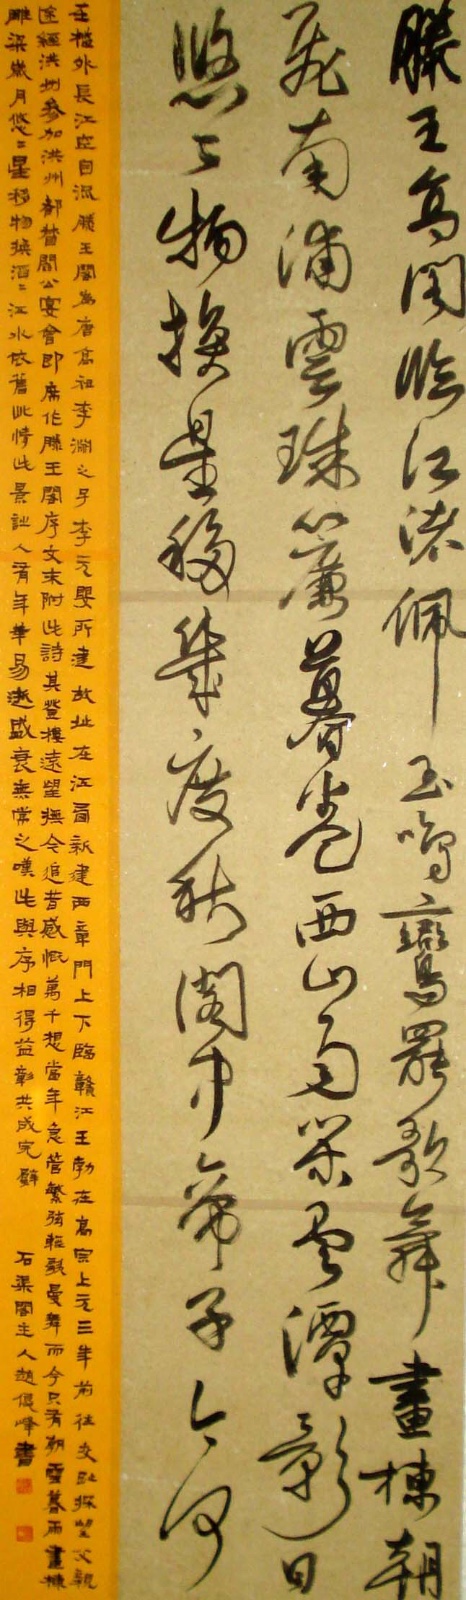 滕王高閣臨江渚佩玉鳴鸞罷歌舞畫棟朝
飛南浦雲珠簾暮卷西山雨閑雲潭影日
悠〻物換星移幾度秋閣中帝子今何
在檻外長江空自流滕王閣為唐高祖李淵之子李元嬰所建故址在江西新建西章門上下臨贛江王勃在高宗上元三年前往交趾探望父親
途經洪州參加洪州都督閻公宴會即席作滕王閣序文末附此詩其登樓遠望撫今追昔感慨萬千想當年急管繁弦輕歌曼舞而今只有朝雲暮雨畫棟
雕梁歲月悠〻星移物換滔〻江水依舊此情此景讓人有年華易逝盛衰無常之嘆此與序相得益彰共成完璧 石渠閣主人趙俊峰書